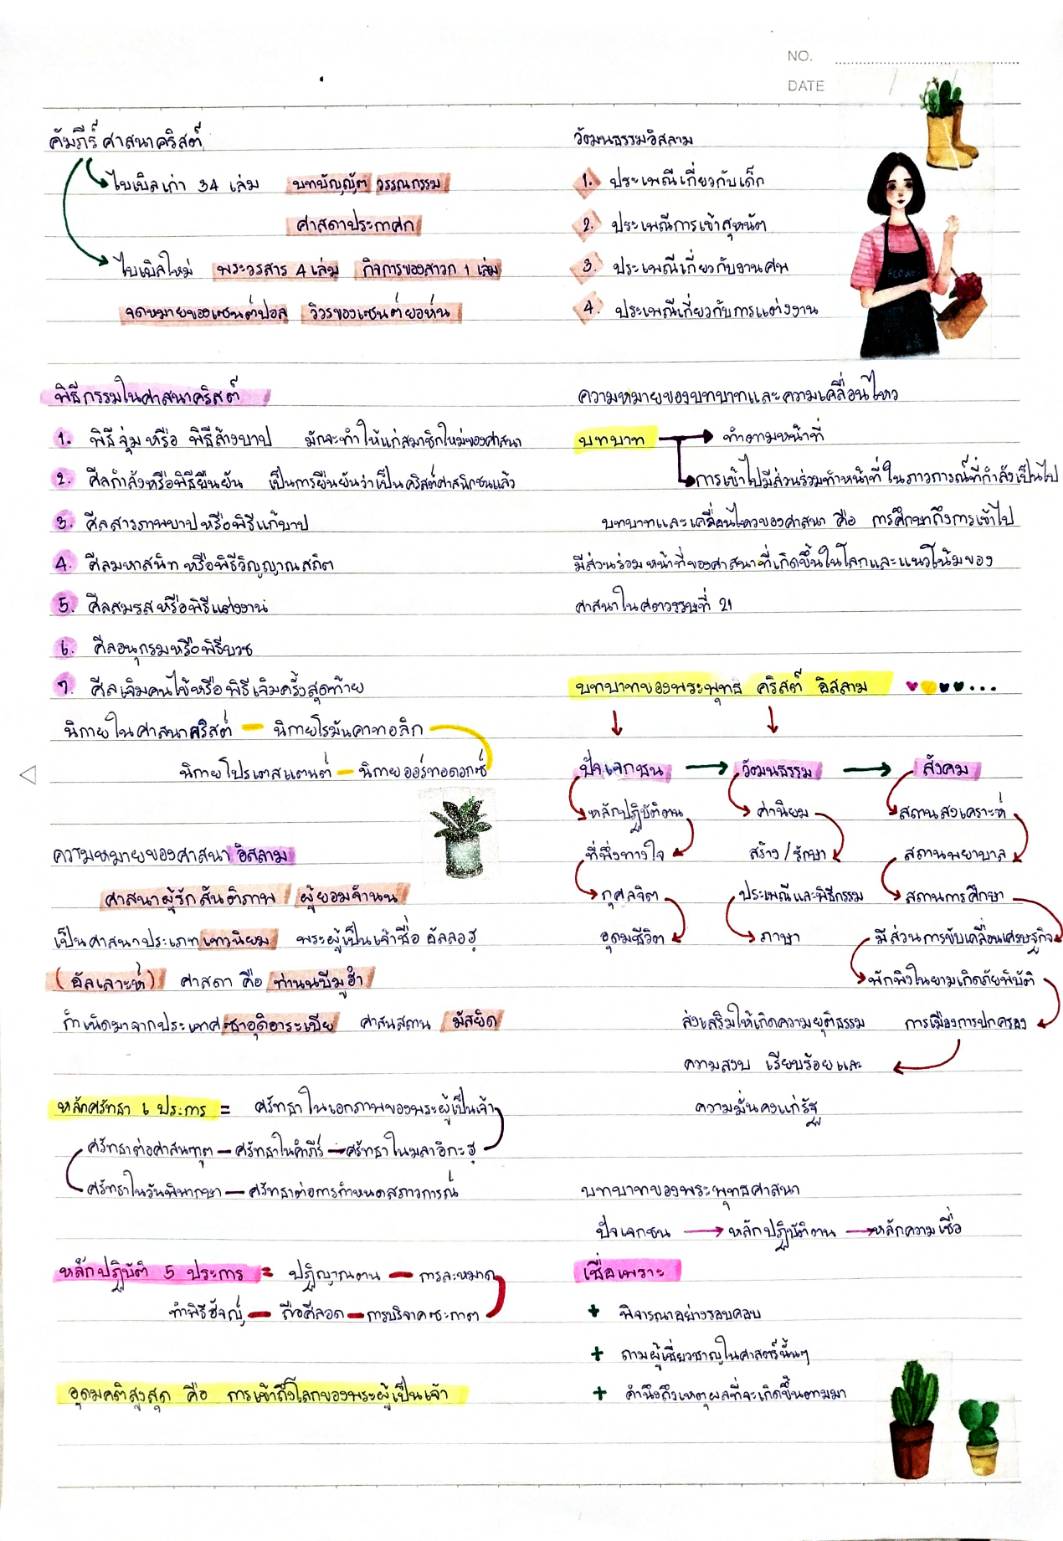 NO.
DATE
คัมภีร์ศาสนาคริสต์
ไบเบิลเก่า 34 เล่ม บทบัญญัติ วรรณกรรม
ศาสดาประกาศก
ไบเบิลใหม่ พระวรสาร 4 เล่ม กิจการของสาวก 1 เล่ม
จดหมายของเซนต์ปอล วิวรของเซนต์ยอห์น
พิธีกรรมในศาสนาคริสต์
1. พิธีจุ่ม หรือ พิธีล้างบาป มักจะทำให้แก่สมาชิกใหม่ของศาสนา
2. ศีลกำลังหรือพิธียืนยัน เป็นการยืนยันว่าเป็นคริสต์ศาสนิกชนแล้ว
3. ศีลสารภาพบาป หรือพิธีแก้บาป
4. ศีลมหาสนิท หรือพิธีวิญญาณสถิต
5. ศีลสมรส หรือพิธีแต่งงาน
6. ศีลอนุกรมหรือพิธีบวช
7. ศีลเจิมคนไข้หรือ พิธีเจิมครั้งสุดท้าย
นิกายในศาสนาคริสต์ — นิกายโรมันคาทอลิก
นิกายโปรเตสแตนต์ — นิกายออร์ทอดอกซ์
ความหมายของศาสนาอิสลาม
ศาสนาผู้รักสันติภาพ ผู้ยอมจำนน
เป็นศาสนาประเภทเทวนิยม พระผู้เป็นเจ้าชื่อ อัลลอฮฺ
(อัลเลาะห์) ศาสดา คือ ท่านนบีมูฮำ
กำเนิดมาจากประเทศซาอุดิอาระเบีย ศาสนสถาน มัสยิด
หลักศรัทธา 6 ประการ = ศรัทธาในเอกภาพของพระผู้เป็นเจ้า
ศรัทธาต่อศาสนทูต — ศรัทธาในคำภีร์ — ศรัทธาในมลาอิกะฮฺ
ศรัทธาในวันพิพากษา — ศรัทธาต่อการกำหนดสภาวการณ์
หลักปฏิบัติ 5 ประการ = ปฏิญาณตน — การละหมาด
ทำพิธีฮัจญ์ — ถือศีลอด — การบริจาคซะกาต
อุดมคติสูงสุด คือ การเข้าถึงโลกของพระผู้เป็นเจ้า
วัฒนธรรมอิสลาม
1. ประเพณีเกี่ยวกับเด็ก
2. ประเพณีการเข้าสุหนัต
3. ประเพณีเกี่ยวกับงานศพ
4. ประเพณีเกี่ยวกับการแต่งงาน
ความหมายของบทบาทและความเคลื่อนไหว
บทบาท ทำตามหน้าที่
การเข้าไปมีส่วนร่วมทำหน้าที่ในภาวการณ์ที่กำลังเป็นไป
บทบาทและเคลื่อนไหวของศาสนา คือ การศึกษาถึงการเข้าไป
มีส่วนร่วม หน้าที่ของศาสนาที่เกิดขึ้นในโลกและแนวโน้มของ
ศาสนาในศตวรรษที่ 21
บทบาทของพระพุทธ คริสต์ อิสลาม ...
ปัจเจกชน วัฒนธรรม สังคม
หลักปฏิบัติตน ค่านิยม สถานสงเคราะห์
ที่พึ่งทางใจ สร้าง/รักษา สถานพยาบาล
กุศลจิต ประเพณีและพิธีกรรม สถานการศึกษา
อุดมชีวิต ภาษา มีส่วนการขับเคลื่อนเศรษฐกิจ
พักพิงในยามเกิดภัยพิบัติ
ส่งเสริมให้เกิดความยุติธรรม การเมืองการปกครอง
ความสงบ เรียบร้อยและ
ความมั่นคงแก่รัฐ
บทบาทของพระพุทธศาสนา
ปัจเจกชน หลักปฏิบัติตน หลักความเชื่อ
เชื่อเพราะ
+ พิจารณาอย่างรอบคอบ
+ ถามผู้เชี่ยวชาญในศาสตร์นั้นๆ
+ คำนึงถึงเหตุผลที่จะเกิดขึ้นตามมา